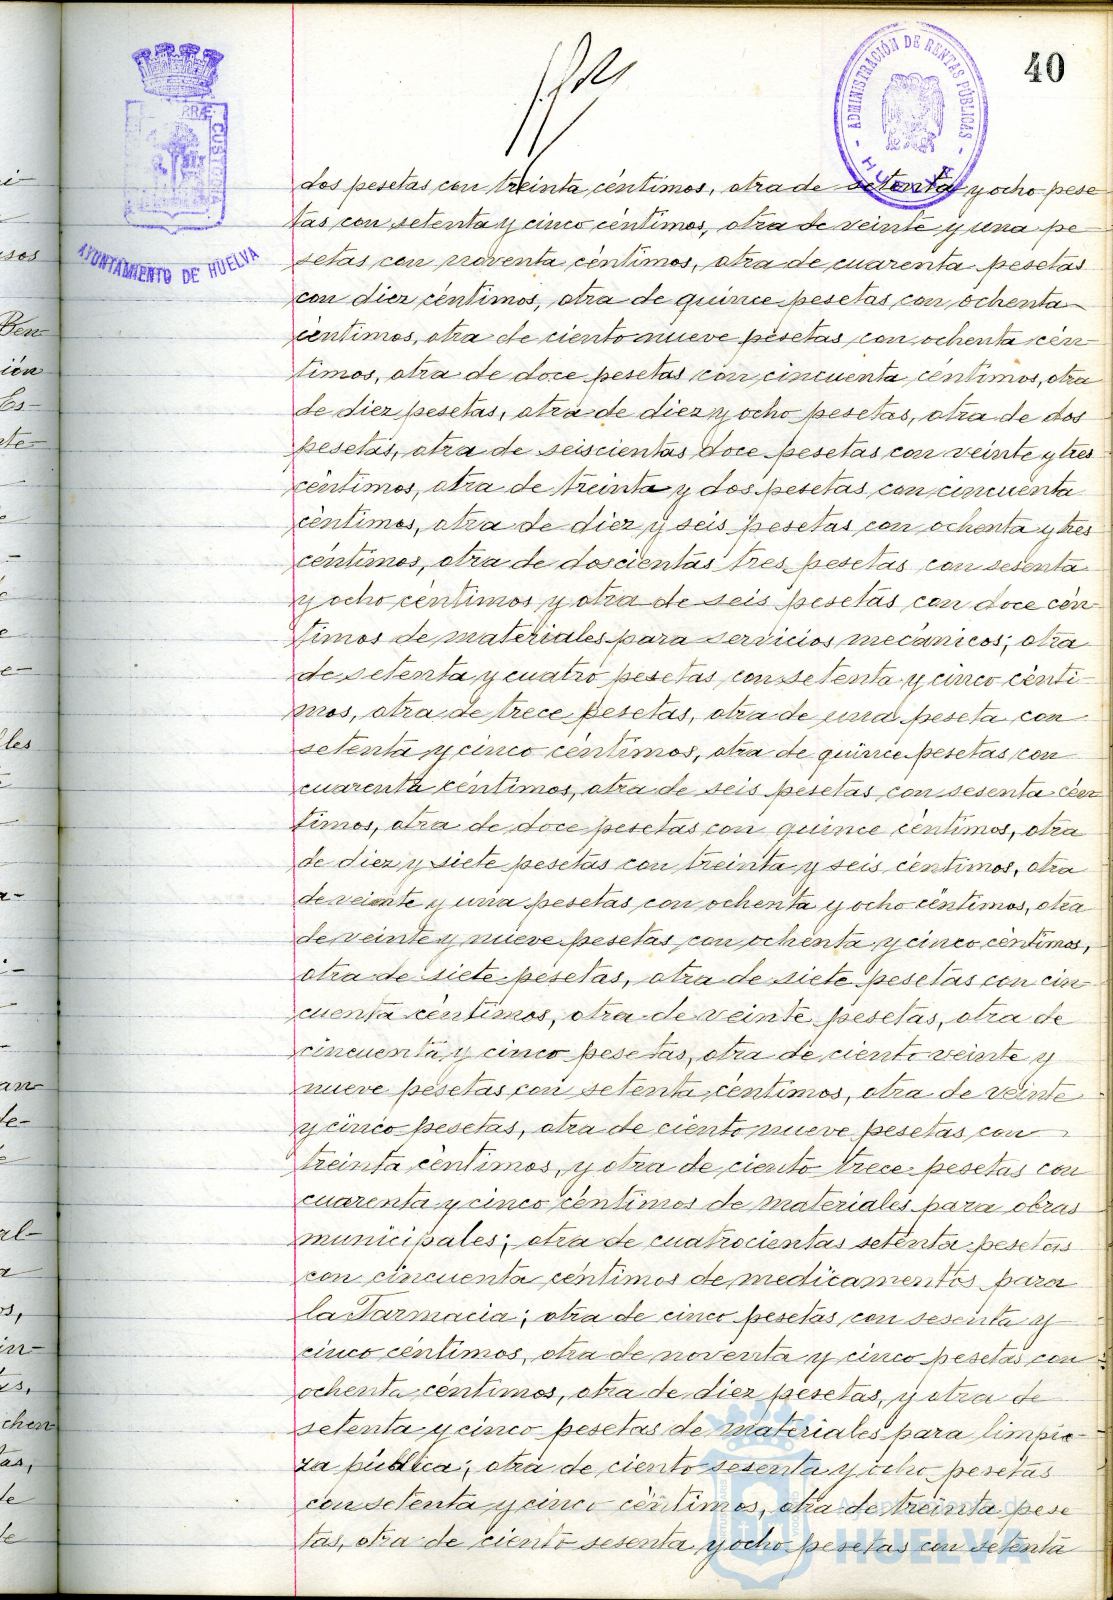 40
PRÆ
CUSTODIA
AYUNTAMIENTO DE HUELVA
ADMINISTRACIÓN DE RENTAS PÚBLICAS
HUELVA
dos pesetas con treinta céntimos, otra de setenta y ocho pese
tas con setenta y cinco céntimos, otra de veinte y una pe
setas con noventa céntimos, otra de cuarenta pesetas
con diez céntimos, otra de quince pesetas con ochenta
céntimos, otra de ciento nueve pesetas con ochenta cén-
timos, otra de doce pesetas con cincuenta céntimos, otra
de diez pesetas, otra de diez y ocho pesetas, otra de dos
pesetas, otra de seiscientas doce pesetas con veinte y tres
céntimos, otra de treinta y dos pesetas con cincuenta
céntimos, otra de diez y seis pesetas con ochenta y tres
céntimos, otra de doscientas tres pesetas con sesenta
y ocho céntimos y otra de seis pesetas con doce cén-
timos de materiales para servicios mecánicos; otra
de setenta y cuatro pesetas con setenta y cinco cénti-
mos, otra de trece pesetas, otra de una peseta con
setenta y cinco céntimos, otra de quince pesetas con
cuarenta céntimos, otra de seis pesetas con sesenta cén
timos, otra de doce pesetas con quince céntimos, otra
de diez y siete pesetas con treinta y seis céntimos, otra
de veinte y una pesetas con ochenta y ocho céntimos, otra
de veinte y nueve pesetas con ochenta y cinco céntimos,
otra de siete pesetas, otra de siete pesetas con cin
cuenta céntimos, otra de veinte pesetas, otra de
cincuenta y cinco pesetas, otra de ciento veinte y
nueve pesetas con setenta céntimos, otra de veinte
y cinco pesetas, otra de ciento nueve pesetas con
treinta céntimos, y otra de ciento trece pesetas con
cuarenta y cinco céntimos de materiales para obras
municipales; otra de cuatrocientas setenta pesetas
con cincuenta céntimos de medicamentos para
la Farmacia; otra de cinco pesetas con sesenta y
cinco céntimos, otra de noventa y cinco pesetas con
ochenta céntimos, otra de diez pesetas, y otra de
setenta y cinco pesetas de materiales para limpie-
za pública; otra de ciento sesenta y ocho pesetas
con setenta y cinco céntimos, otra de treinta pese
tas, otra de ciento sesenta y ocho pesetas con setenta
Ayuntamiento de
HUELVA
sos
Ben-
ión
Es-
te-
les
an-
de-
al-
os,
in-
chen
tas,
de